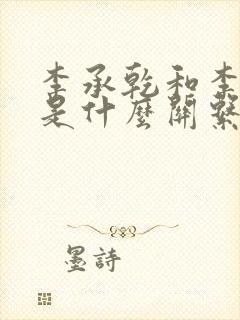 李承乾和李
是什麼關係
墨詩